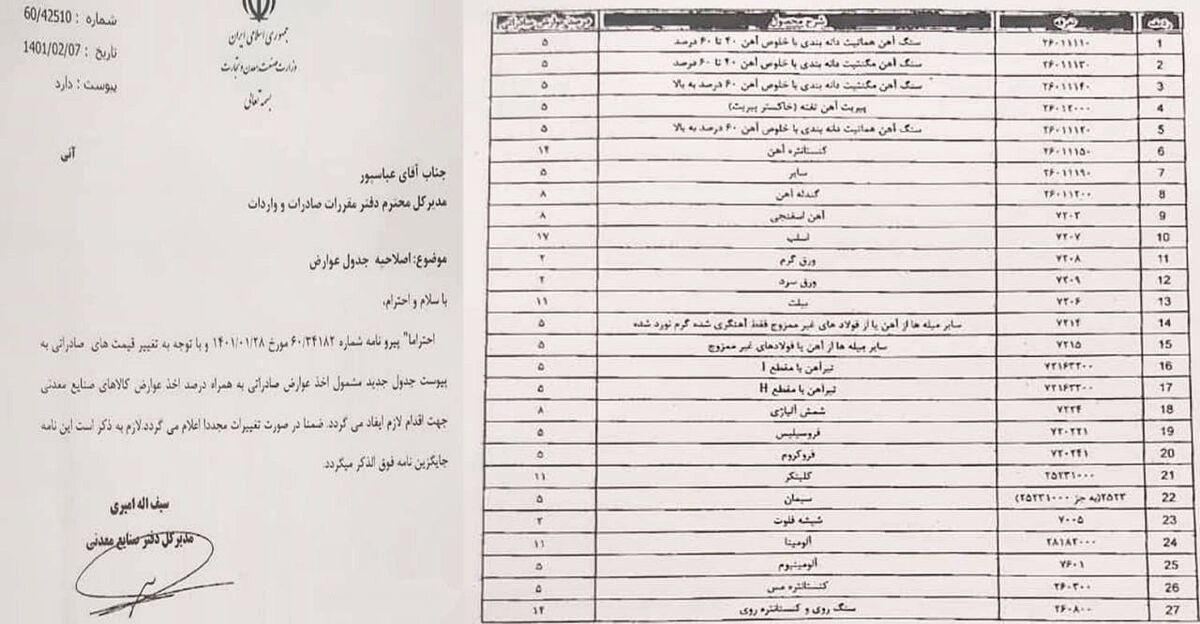 شماره : 60/42510
تاریخ : 1401/02/07
پیوست : دارد
جمهوری اسلامی ایران
وزارت صنعت، معدن و تجارت
بسمه تعالی
آنی
جناب آقای عباسپور
مدیرکل محترم دفتر مقررات صادرات و واردات
موضوع: اصلاحیه جدول عوارض
با سلام و احترام،
احتراما" پیرو نامه شماره ۶۰/۳۴۱۸۲ مورخ ۱۴۰۱/۰۱/۲۸ و با توجه به تغییر قیمت های صادراتی به
پیوست جدول جدید مشمول اخذ عوارض صادراتی به همراه درصد اخذ عوارض کالاهای صنایع معدنی
جهت اقدام لازم ایفاد می گردد. ضمنا در صورت تغییرات مجددا اعلام می گردد.لازم به ذکر است این نامه
جایگزین نامه فوق الذکر میگردد.
سیف اله امیری
مدیرکل دفتر صنایع معدنی
ردیف تعرفه شرح محصول درصد عوارض صادراتی
1 ۲۶۰۱۱۱۱۰ سنگ آهن هماتیت دانه بندی با خلوص آهن ۴۰ تا ۶۰ درصد ۵
2 ۲۶۰۱۱۱۳۰ سنگ آهن مگنتیت دانه بندی با خلوص آهن ۴۰ تا ۶۰ درصد ۵
3 ۲۶۰۱۱۱۴۰ سنگ آهن مگنتیت دانه بندی با خلوص آهن ۶۰ درصد به بالا ۵
4 ۲۶۰۱۲۰۰۰ پیریت آهن تفته (خاکستر پیریت) ۵
5 ۲۶۰۱۱۱۲۰ سنگ آهن هماتیت دانه بندی با خلوص آهن ۶۰ درصد به بالا ۵
6 ۲۶۰۱۱۱۵۰ کنستانتره آهن ۱۴
7 ۲۶۰۱۱۱۹۰ سایر ۵
8 ۲۶۰۱۱۲۰۰ گندله آهن ۸
9 ۷۲۰۳ آهن اسفنجی ۸
10 ۷۲۰۷ اسلب ۱۷
11 ۷۲۰۸ ورق گرم ۲
12 ۷۲۰۹ ورق سرد ۲
13 ۷۲۰۶ بیلت ۱۱
14 ۷۲۱۴ سایر میله ها از آهن یا از فولاد های غیر ممزوج فقط آهنگری شده گرم نورد شده ۵
15 ۷۲۱۵ سایر میله ها از آهن یا فولادهای غیر ممزوج ۵
16 ۷۲۱۶۳۲۰۰ تیرآهن با مقطع I ۵
17 ۷۲۱۶۳۳۰۰ تیرآهن با مقطع H ۵
18 ۷۲۲۴ شمش آلیاژی ۸
19 ۷۲۰۲۲۱ فروسیلیس ۵
20 ۷۲۰۲۴۱ فروکروم ۵
21 ۲۵۲۳۱۰۰۰ کلینکر ۱۱
22 ۲۵۲۳(به جز ۲۵۲۳۱۰۰۰) سیمان ۵
23 ۷۰۰۵ شیشه فلوت ۲
24 ۲۸۱۸۲۰۰۰ آلومینا ۱۱
25 ۷۶۰۱ آلومینیوم ۵
26 ۲۶۰۳۰۰ کنستانتره مس ۵
27 ۲۶۰۸۰۰ سنگ روی و کنستانتره روی ۱۴